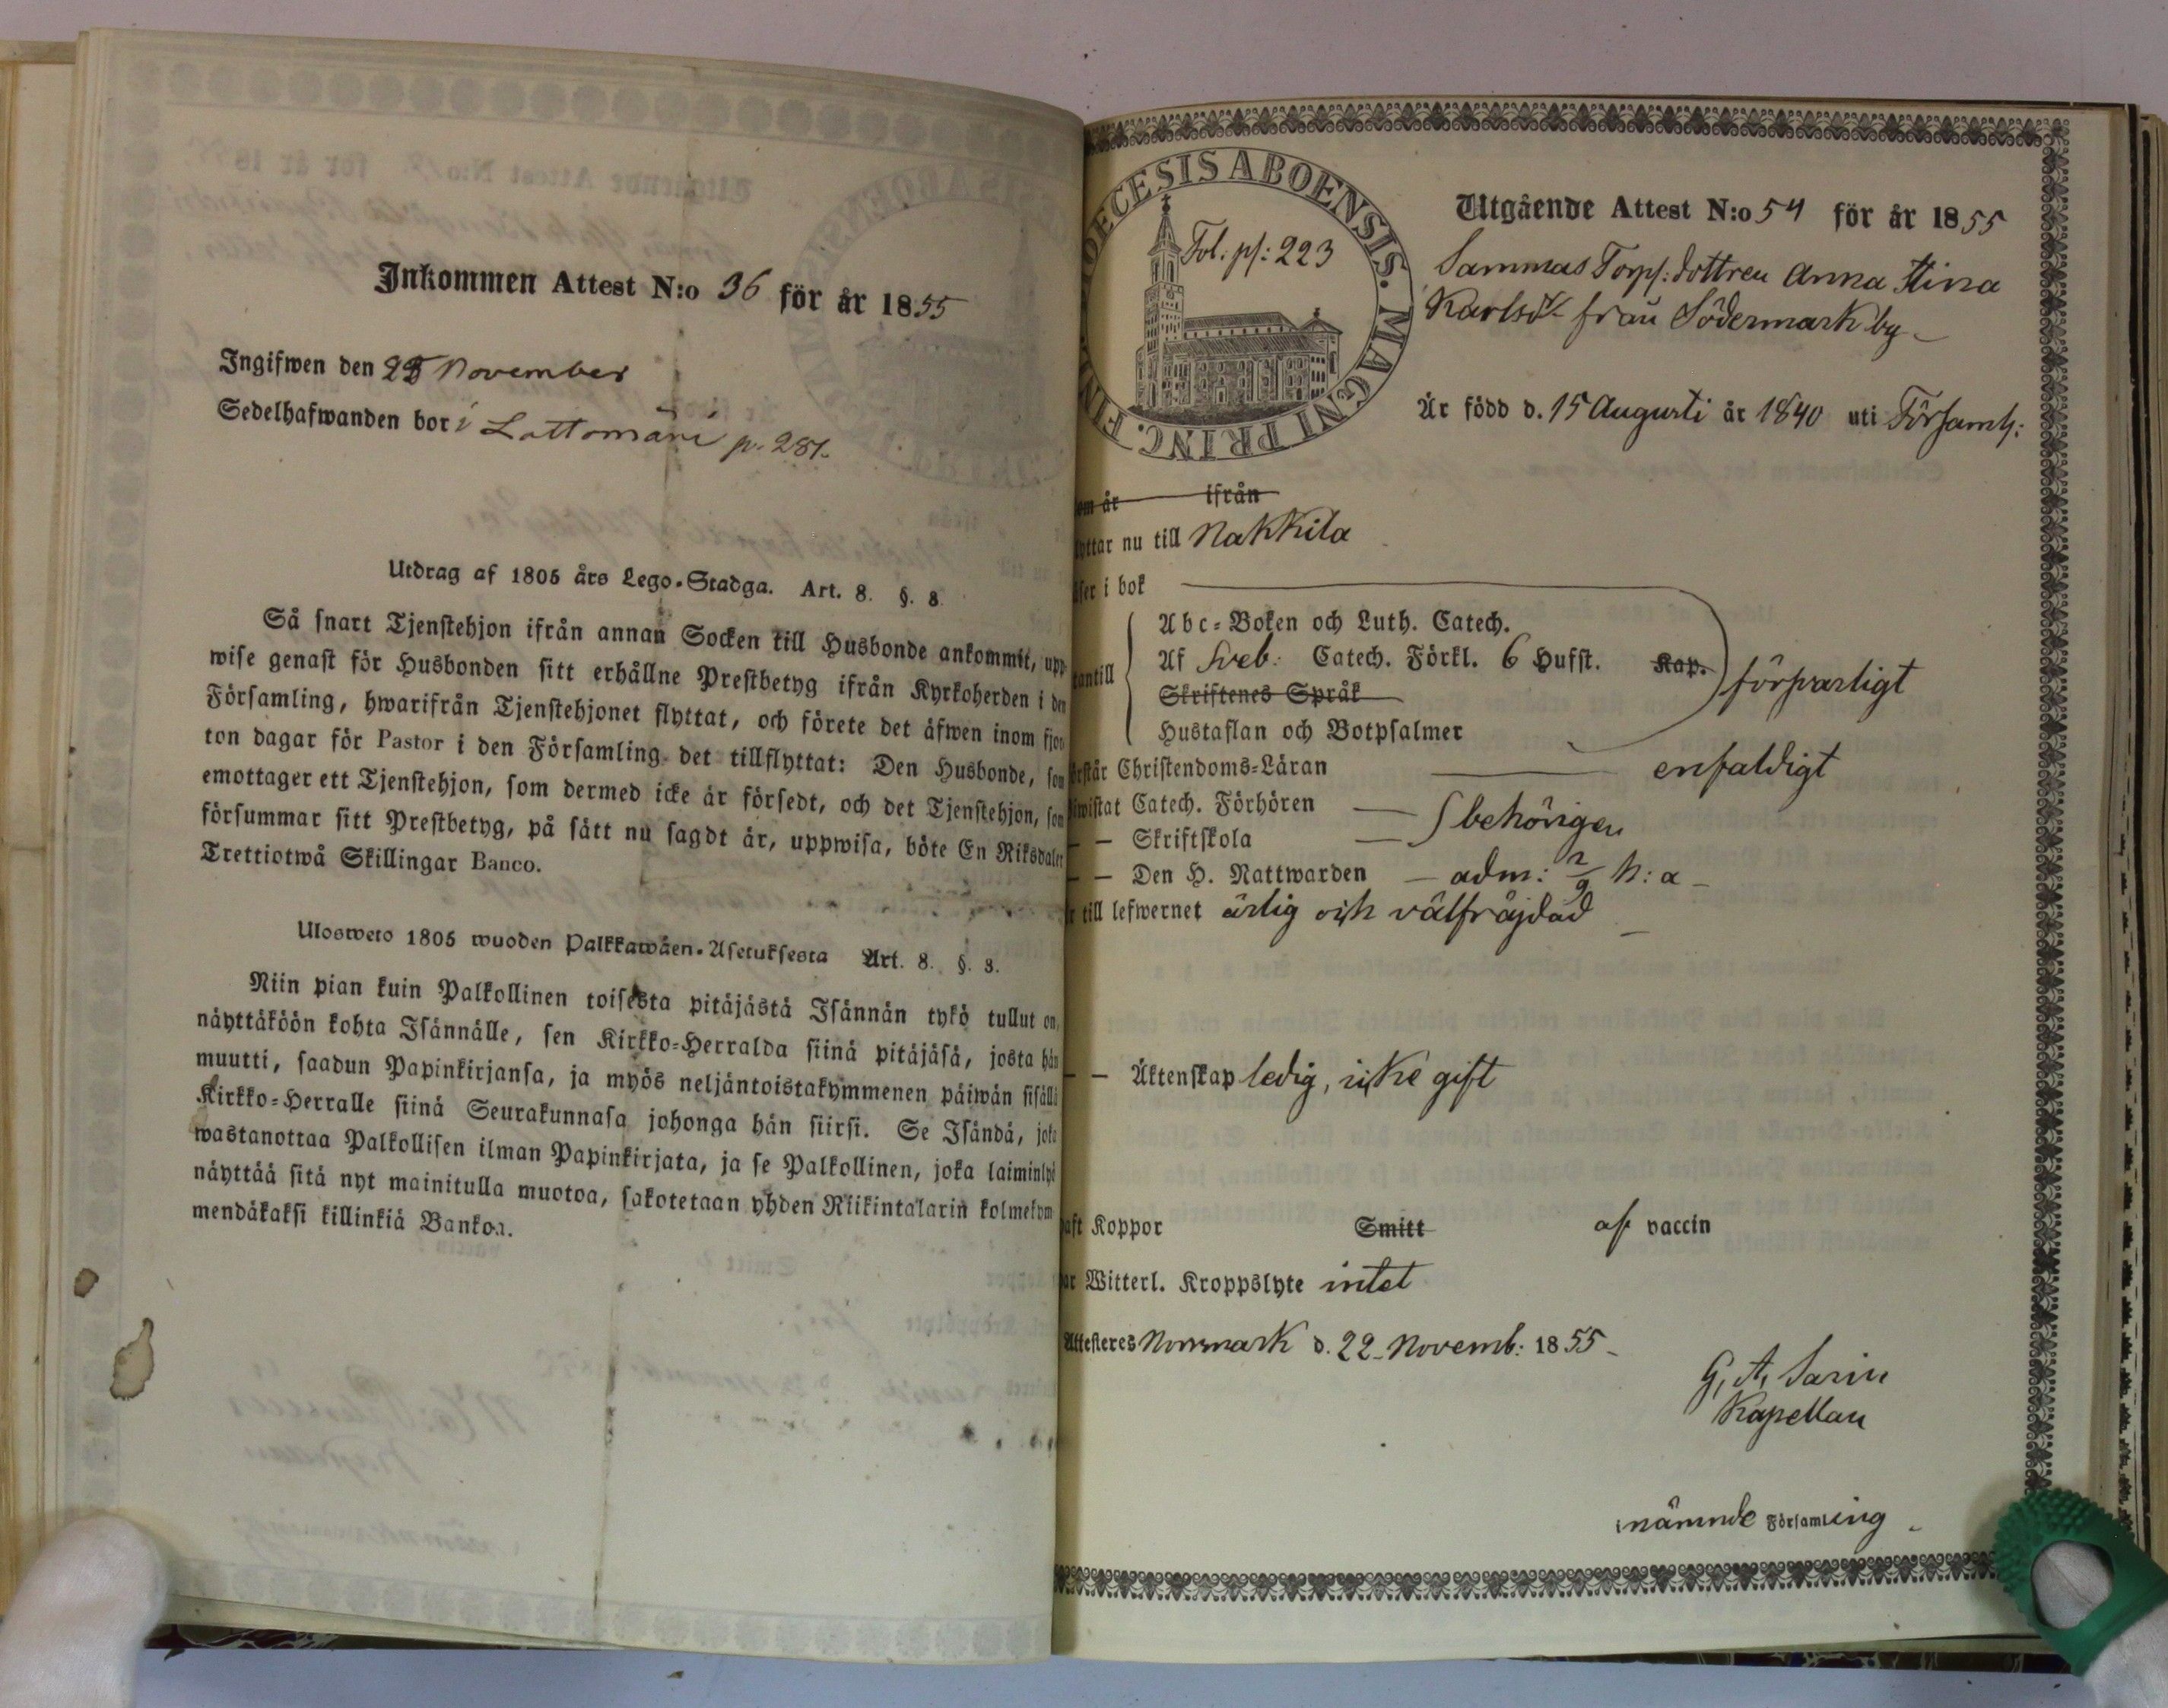 Inkommen Attest N:o 36 för år 1855
Ingifwen den 25 November
Sedelhafwanden bor i Lattomäri p. 281.
Utdrag af 1805 års Lego-Stadga. Art. 8. §. 8.
Så snart Tjenstehjon ifrån annan Socken till Husbonde ankommit, upp
wise genast för Husbonden sitt erhållne Prestbetyg ifrån Kyrkoherden i den
Församling, hwarifrån Tjenstehjonet flyttat, och förete det äfwen inom fjor
ton dagar för Pastor i den Församling det tillflyttat: Den Husbonde, som
emottager ett Tjenstehjon, som dermed icke är försedt, och det Tjenstehjon, som
försummar sitt Prestbetyg, på sätt nu sagdt är, uppwisa, böte En Riksdaler
Trettiotwå Skillingar Banco.
Ulosweto 1805 wuoden Palkkawäen-Asetuksesta Art. 8. §. 8.
Niin pian kuin Palkollinen toisesta pitäjästä Isännän tykö tullut on,
näyttäköön kohta Isännälle, sen Kirkko-Herralda siinä pitäjäsä, josta hän
muutti, saadun Papinkirjansa, ja myös neljäntoistakymmenen päiwän sisällä
Kirkko-Herralle siinä Seurakunnasa johonga hän siirsi. Se Isändä, joka
wastanottaa Palkollisen ilman Papinkirjata, ja se Palkollinen, joka laiminlyö
näyttää sitä nyt mainitulla muotoa, sakotetaan yhden Riikintalarin kolmekym
mendäkaksi killinkiä Bankoa.
DIOECESIS ABOENSIS. MAGNI PRINC. FIN
Fol: ps: 223
Utgående Attest N:o 54 för år 1855
Sammas Torp: dottren Anna Stina
Karlsdr från Södermark by
Är född d. 15 Augusti år 1840 uti Församl:
om är ifrån
yttar nu till Nakkila
äser i bok
Abc-Boken och Luth. Catech.
utantill Af Sveb: Catech. Förkl. 6 Hufst. Kap. försvarligt
Skriftenes Språk
Hustaflan och Botpsalmer
örstår Christendoms-Läran enfaldigt
iwistat Catech. Förhören behörigen
— — Skriftskola
— — Den H. Nattwarden — adm: 2/9 h: a
r till lefwernet ärlig och välfräjdad
— — Äktenskap ledig, icke gift
aft Koppor Smitt af vaccin
ar Witterl. Kroppslyte intet
Attesteres Norrmark d. 22 Novemb: 1855
G. A. Sarin
Kapellan
i nämnde Församling